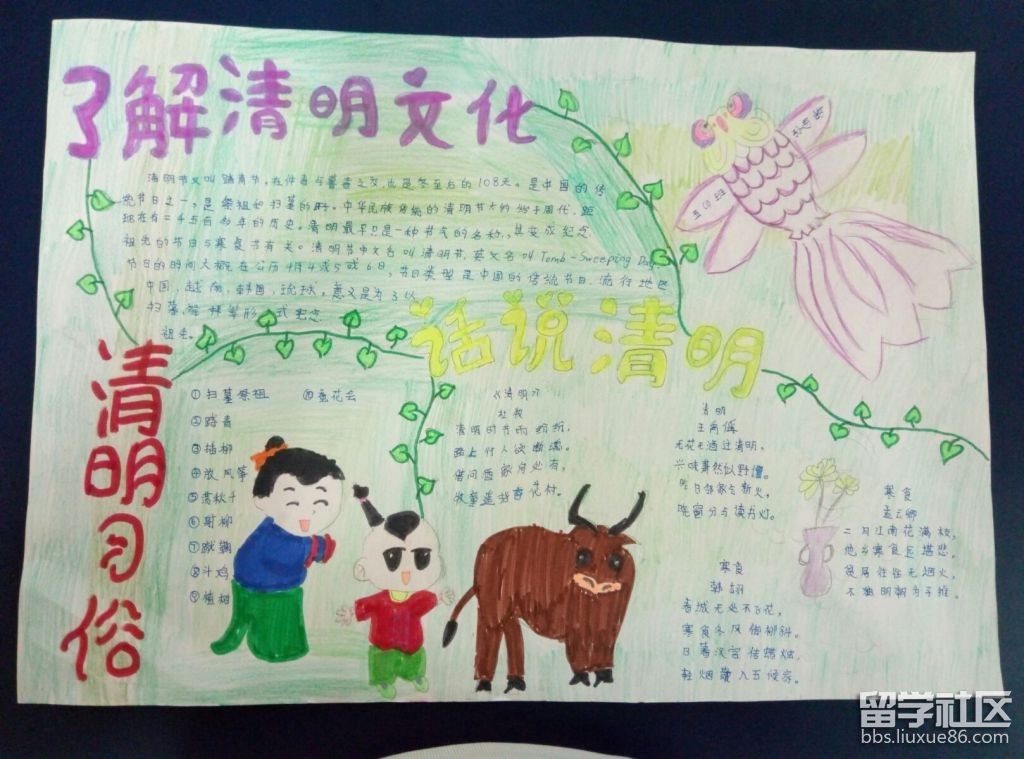 了解清明文化
清明节又叫踏青节,在仲春与暮春之交,也是冬至后的108天。是中国的传
统节日之一,是祭祖和扫墓的日子。中华民族传统的清明节大约始于周代,距
现在有二千五百多年的历史。清明最早只是一种节气的名称,其变成纪念
祖先的节日与寒食节有关。清明节中文名叫清明节,英文名叫Tomb-Sweeping Day
节日的时间大概在公历4月4或5或6日,节日类型是中国的传统节日,流行地区
中国,越南,韩国,琉球,意义是为了以
扫墓、祭拜等形式纪念
祖先。
话说清明
清明习俗
①扫墓祭祖 ⑩蚕花会
②踏青
③插柳
④放风筝
⑤荡秋千
⑥射柳
⑦蹴鞠
⑧斗鸡
⑨植树
《清明》
杜牧
清明时节雨纷纷,
路上行人欲断魂。
借问酒家何处有,
牧童遥指杏花村。
清明
王禹偁
无花无酒过清明,
兴味萧然似野僧。
昨日邻家乞新火,
晓窗分与读书灯。
寒食
孟云卿
二月江南花满枝,
他乡寒食远堪悲。
贫居往往无烟火,
不独明朝为子推。
寒食
韩翃
春城无处不飞花,
寒食东风御柳斜。
日暮汉宫传蜡烛,
轻烟散入五侯家。
留学社区
bbs.liuxue86.com